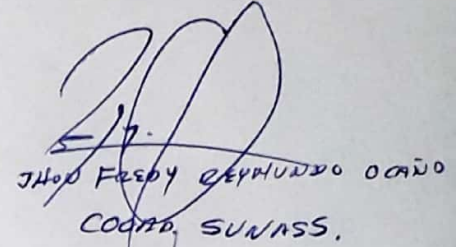 JHON FREDY REYMUNDO OCAÑO
COCAD. SUNASS.